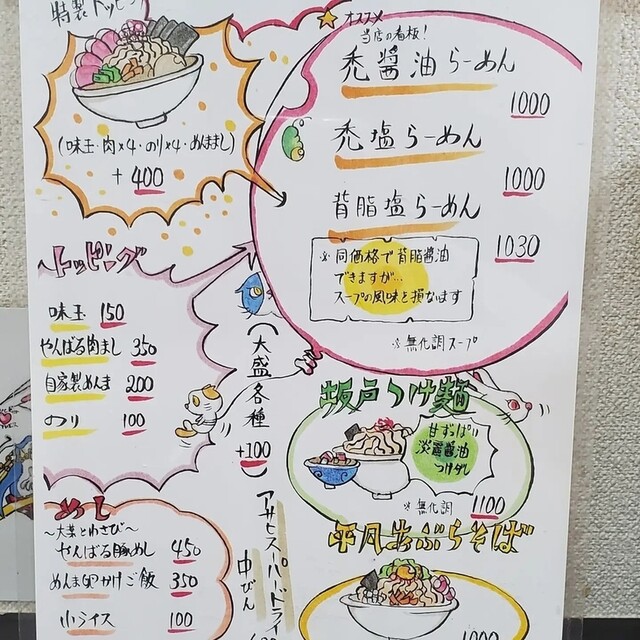 特製トッピング
(味玉・肉×4・のり×4・めんままし)
+400
オススメ
当店の看板!
禿醤油らーめん
1000
禿塩らーめん
1000
背脂塩らーめん
1030
※同価格で背脂醤油
できますが…
スープの風味を損なます
※無化調スープ
トッピング
味玉 150
やんばる肉まし 350
自家製めんま 200
のり 100
大盛各種
+100
坂戸つけ麺
甘ずっぱい
淡麗醤油
つけダレ
※無化調 1100
めし
~大葉とわさび~
やんばる豚めし 450
めんま卵かけご飯 350
小ライス 100
アサヒスーパードライ
中びん
あぶらそば
1000